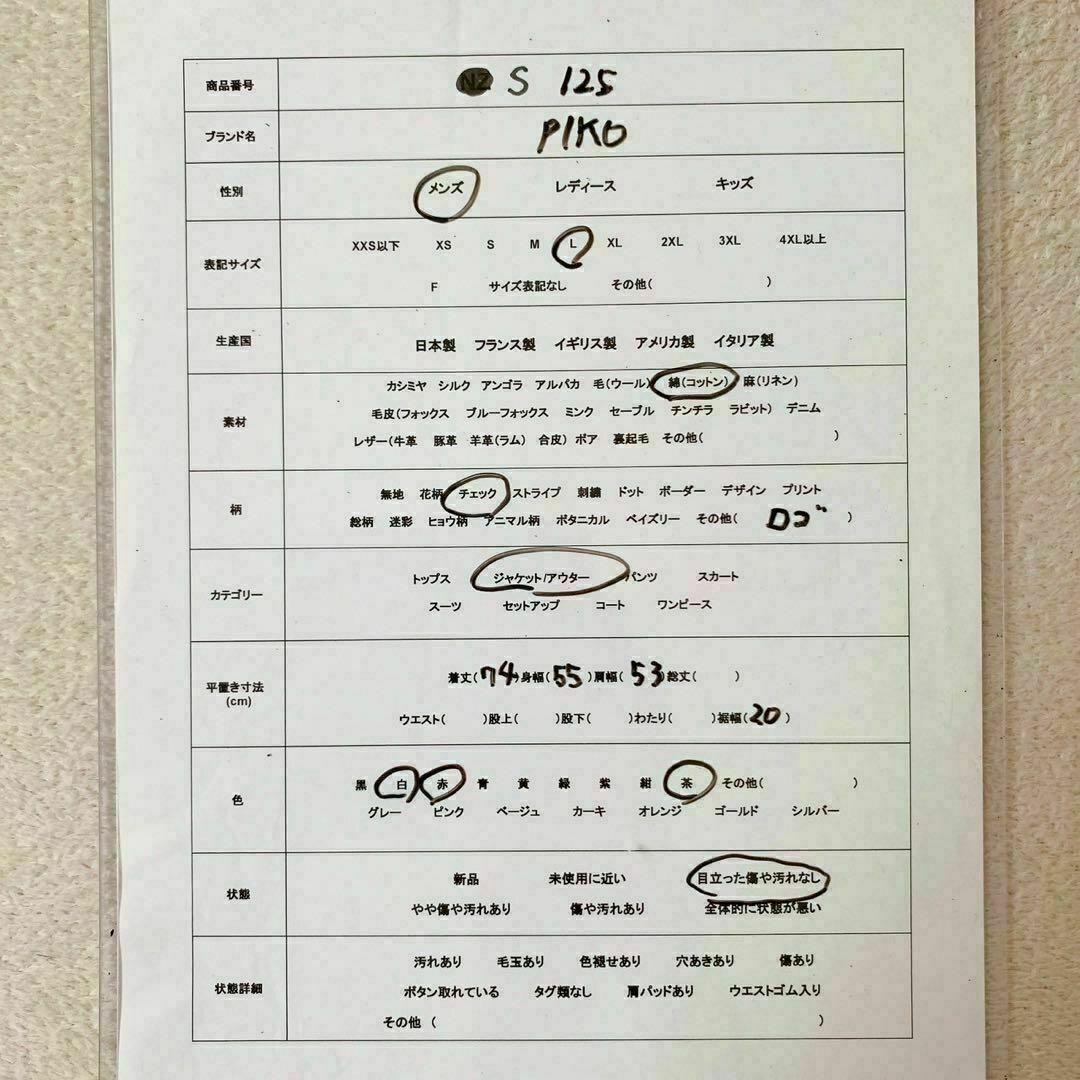 商品番号 NZ S 125
ブランド名 PIKO
性別 メンズ レディース キッズ
XXS以下 XS S M L XL 2XL 3XL 4XL以上
表記サイズ
F サイズ表記なし その他( )
生産国 日本製 フランス製 イギリス製 アメリカ製 イタリア製
カシミヤ シルク アンゴラ アルパカ 毛(ウール) 綿(コットン) 麻(リネン)
素材 毛皮(フォックス ブルーフォックス ミンク セーブル チンチラ ラビット) デニム
レザー(牛革 豚革 羊革(ラム) 合皮) ボア 裏起毛 その他( )
柄 無地 花柄 チェック ストライプ 刺繍 ドット ボーダー デザイン プリント
総柄 迷彩 ヒョウ柄 アニマル柄 ボタニカル ペイズリー その他( ロゴ )
トップス ジャケット/アウター パンツ スカート
カテゴリー
スーツ セットアップ コート ワンピース
着丈(74)身幅(55)肩幅(53)総丈( )
平置き寸法
(cm)
ウエスト( )股上( )股下( )わたり( )裾幅(20)
黒 白 赤 青 黄 緑 紫 紺 茶 その他( )
色
グレー ピンク ベージュ カーキ オレンジ ゴールド シルバー
新品 未使用に近い 目立った傷や汚れなし
状態
やや傷や汚れあり 傷や汚れあり 全体的に状態が悪い
汚れあり 毛玉あり 色褪せあり 穴あきあり 傷あり
状態詳細 ボタン取れている タグ類なし 肩パッドあり ウエストゴム入り
その他 ( )